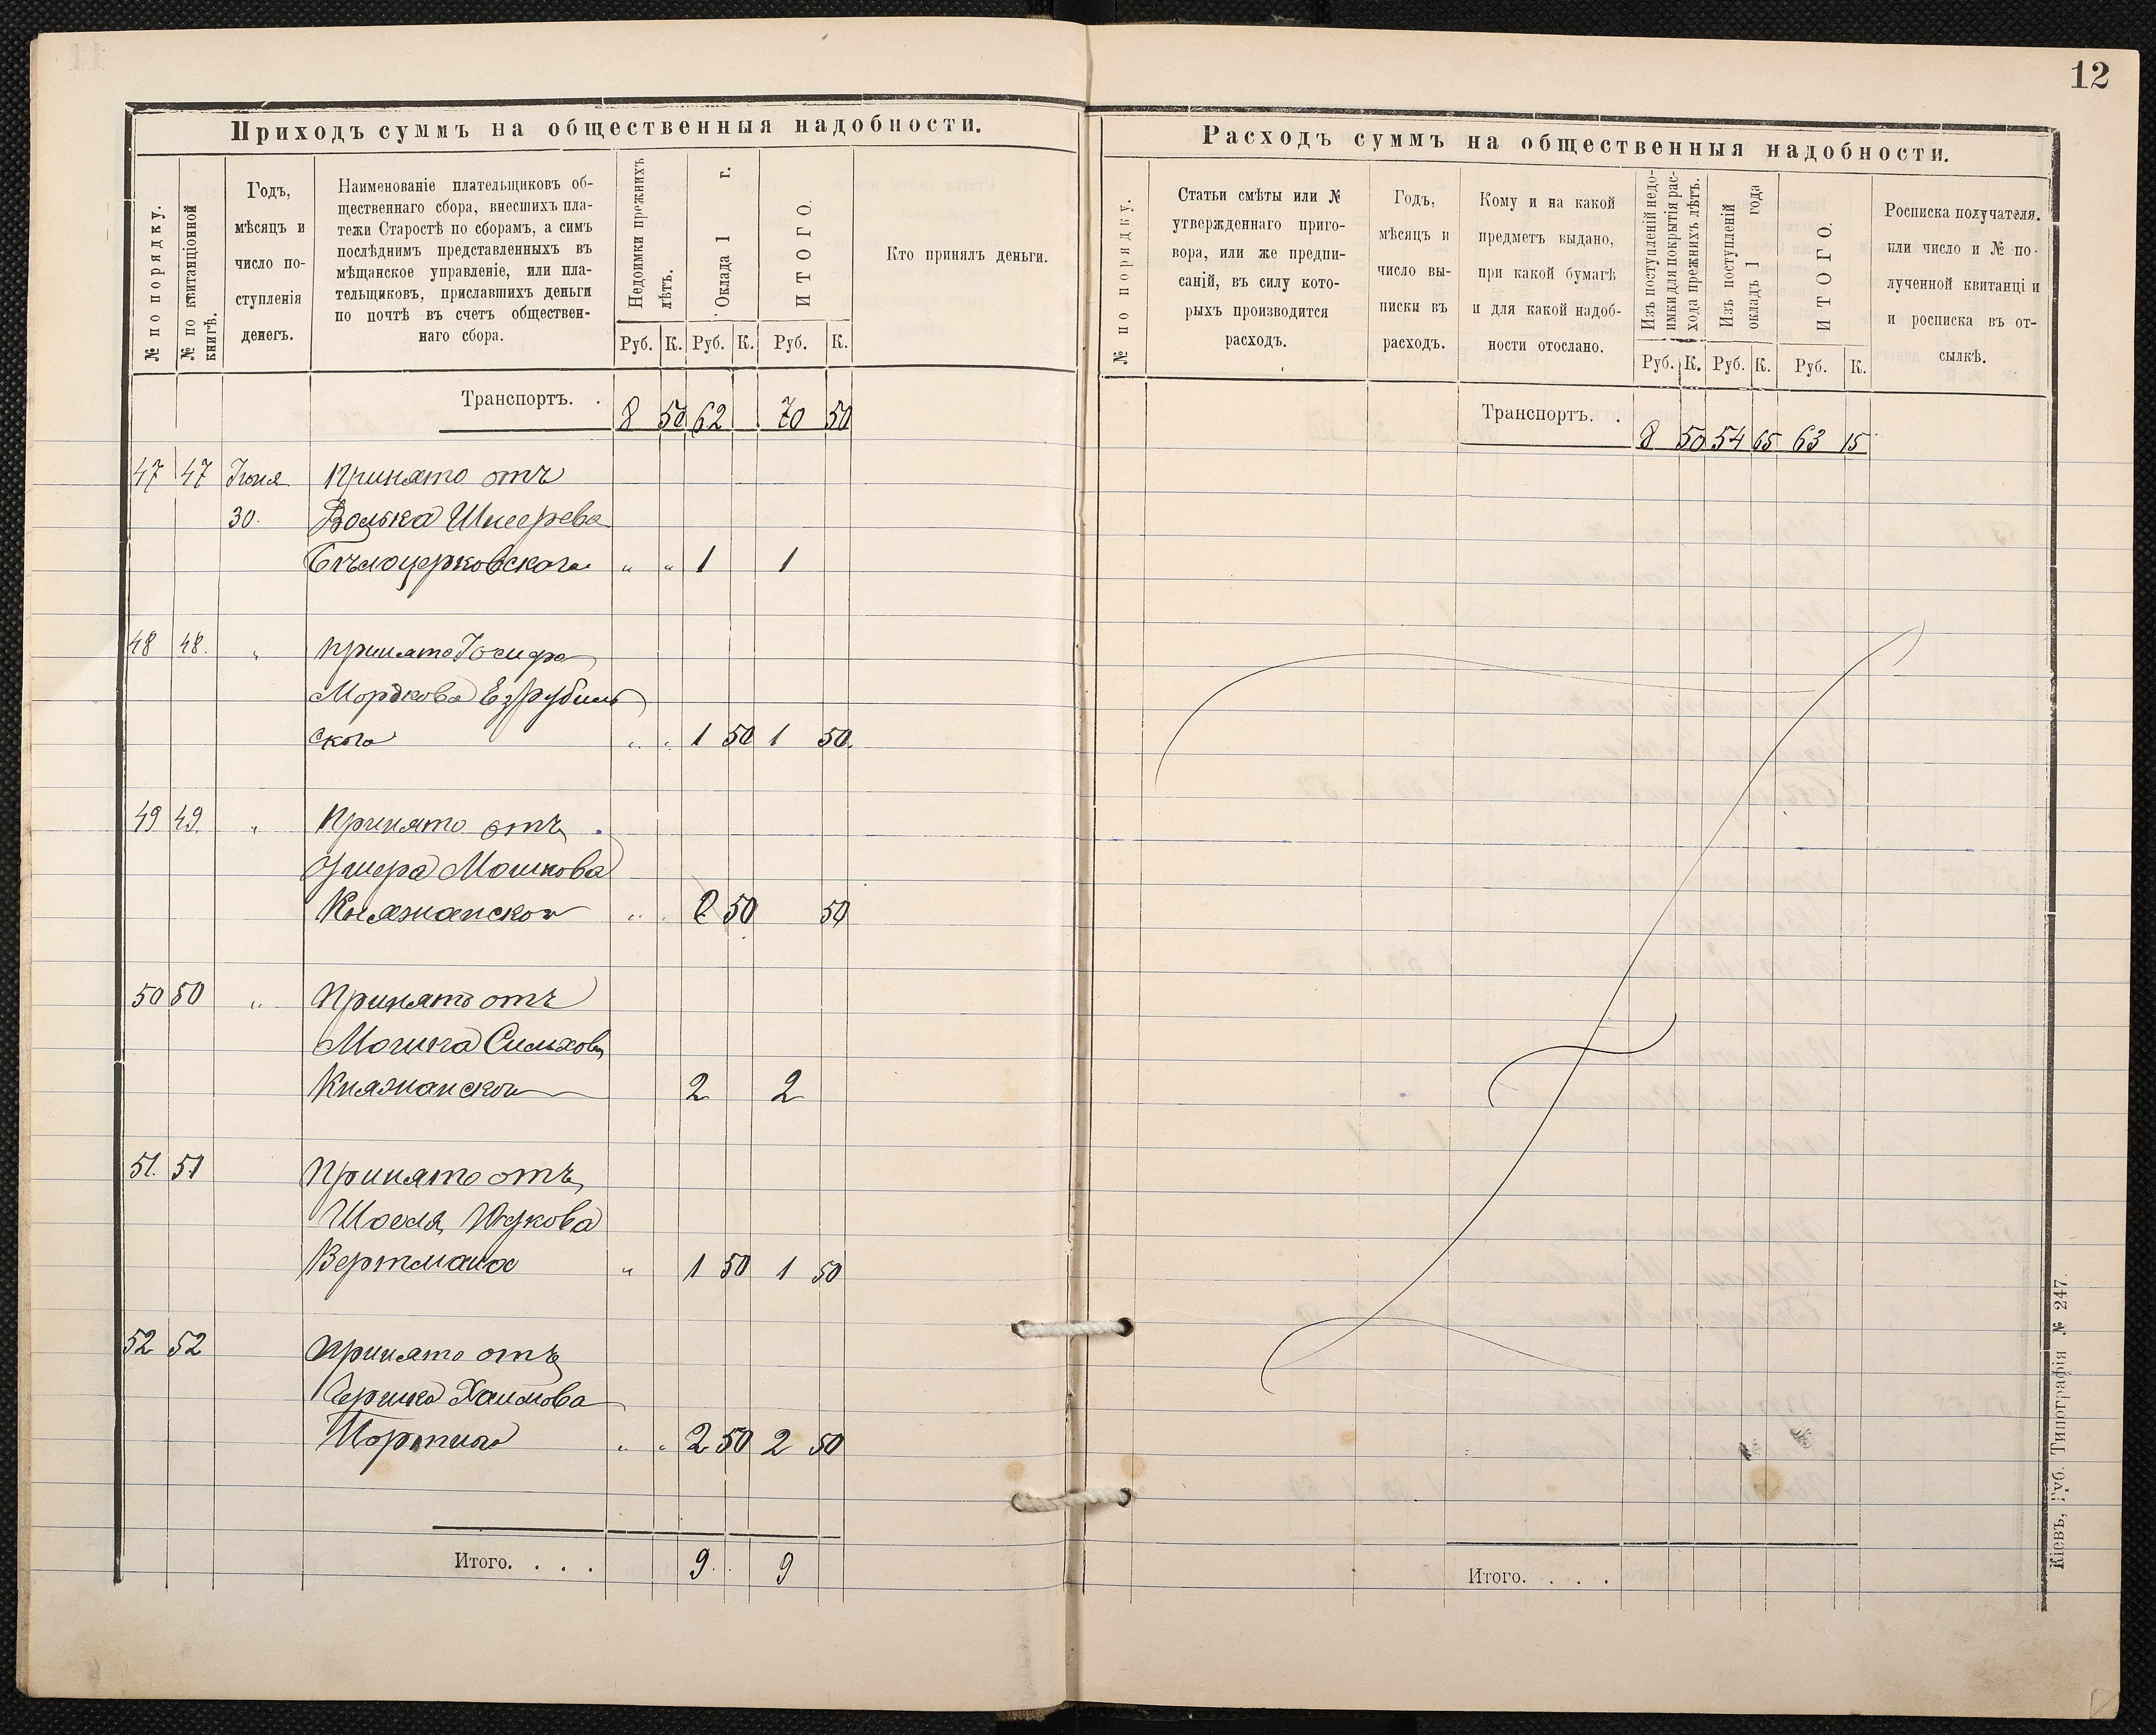 12
Приходъ суммъ на общественныя надобности.
№ по порядку.
№ по квитанціонной
книгѣ.
Годъ,
мѣсяцъ и
число по-
ступленія
денегъ.
Наименованіе плательщиковъ об-
щественнаго сбора, внесшихъ пла-
тежи Старостѣ по сборамъ, а симъ
послѣднимъ представленныхъ въ
мѣщанское управленіе, или пла-
тельщиковъ, приславшихъ деньги
по почтѣ въ счетъ обществен-
наго сбора.
Недоимки прежнихъ
лѣтъ.
Оклада 1 г.
ИТОГО.
Кто принялъ деньги.
Руб. К. Руб. К. Руб. К.
Транспортъ. . 8 50 62 70 50
47 47 Іюня Принято отъ
30. Волька Шмерева
Бѣлоцерковскаго „ „ 1 1
48 48. „ Принято Іосифа
Мордкова
скаго „ „ 1 50 1 50.
49 49. „ Принято отъ
Ушера Мошкова
Княжанского „ 50 50
50 50 „ Принято отъ
Мошка
Княжанского 2 2
51. 51 Принято отъ
Шоеля Юдкова
Вертмана „ 1 50 1 50
52 52 Принято отъ
Гершка Хаимова
Портного „ „ 2 50 2 50
Итого. . . . 9 9
Расходъ суммъ на общественныя надобности.
№ по порядку.
Статьи смѣты или №
утвержденнаго приго-
вора, или же предпи-
саній, въ силу кото-
рыхъ производится
расходъ.
Годъ,
мѣсяцъ и
число вы-
писки въ
расходъ.
Кому и на какой
предметъ выдано,
при какой бумагѣ
и для какой надоб-
ности отослано.
Изъ поступленій недо-
имки для покрытія рас-
хода прежнихъ лѣтъ.
Изъ поступленій
окладъ 1 года
ИТОГО.
Росписка получателя.
или число и № по-
лученной квитанціи
и росписка въ от-
сылкѣ.
Руб. К. Руб. К. Руб. К.
Транспортъ. . 8 50 54 65 63 15
Итого. . . .
Кіевъ, Губ. Типографія № 247.